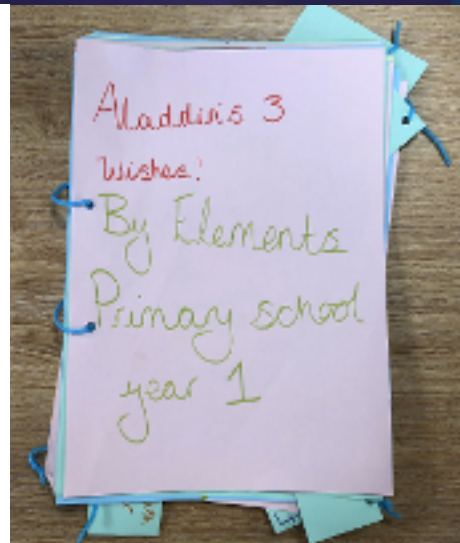 Aladdin's 3
Wishes!
By Elements
Primary school
year 1